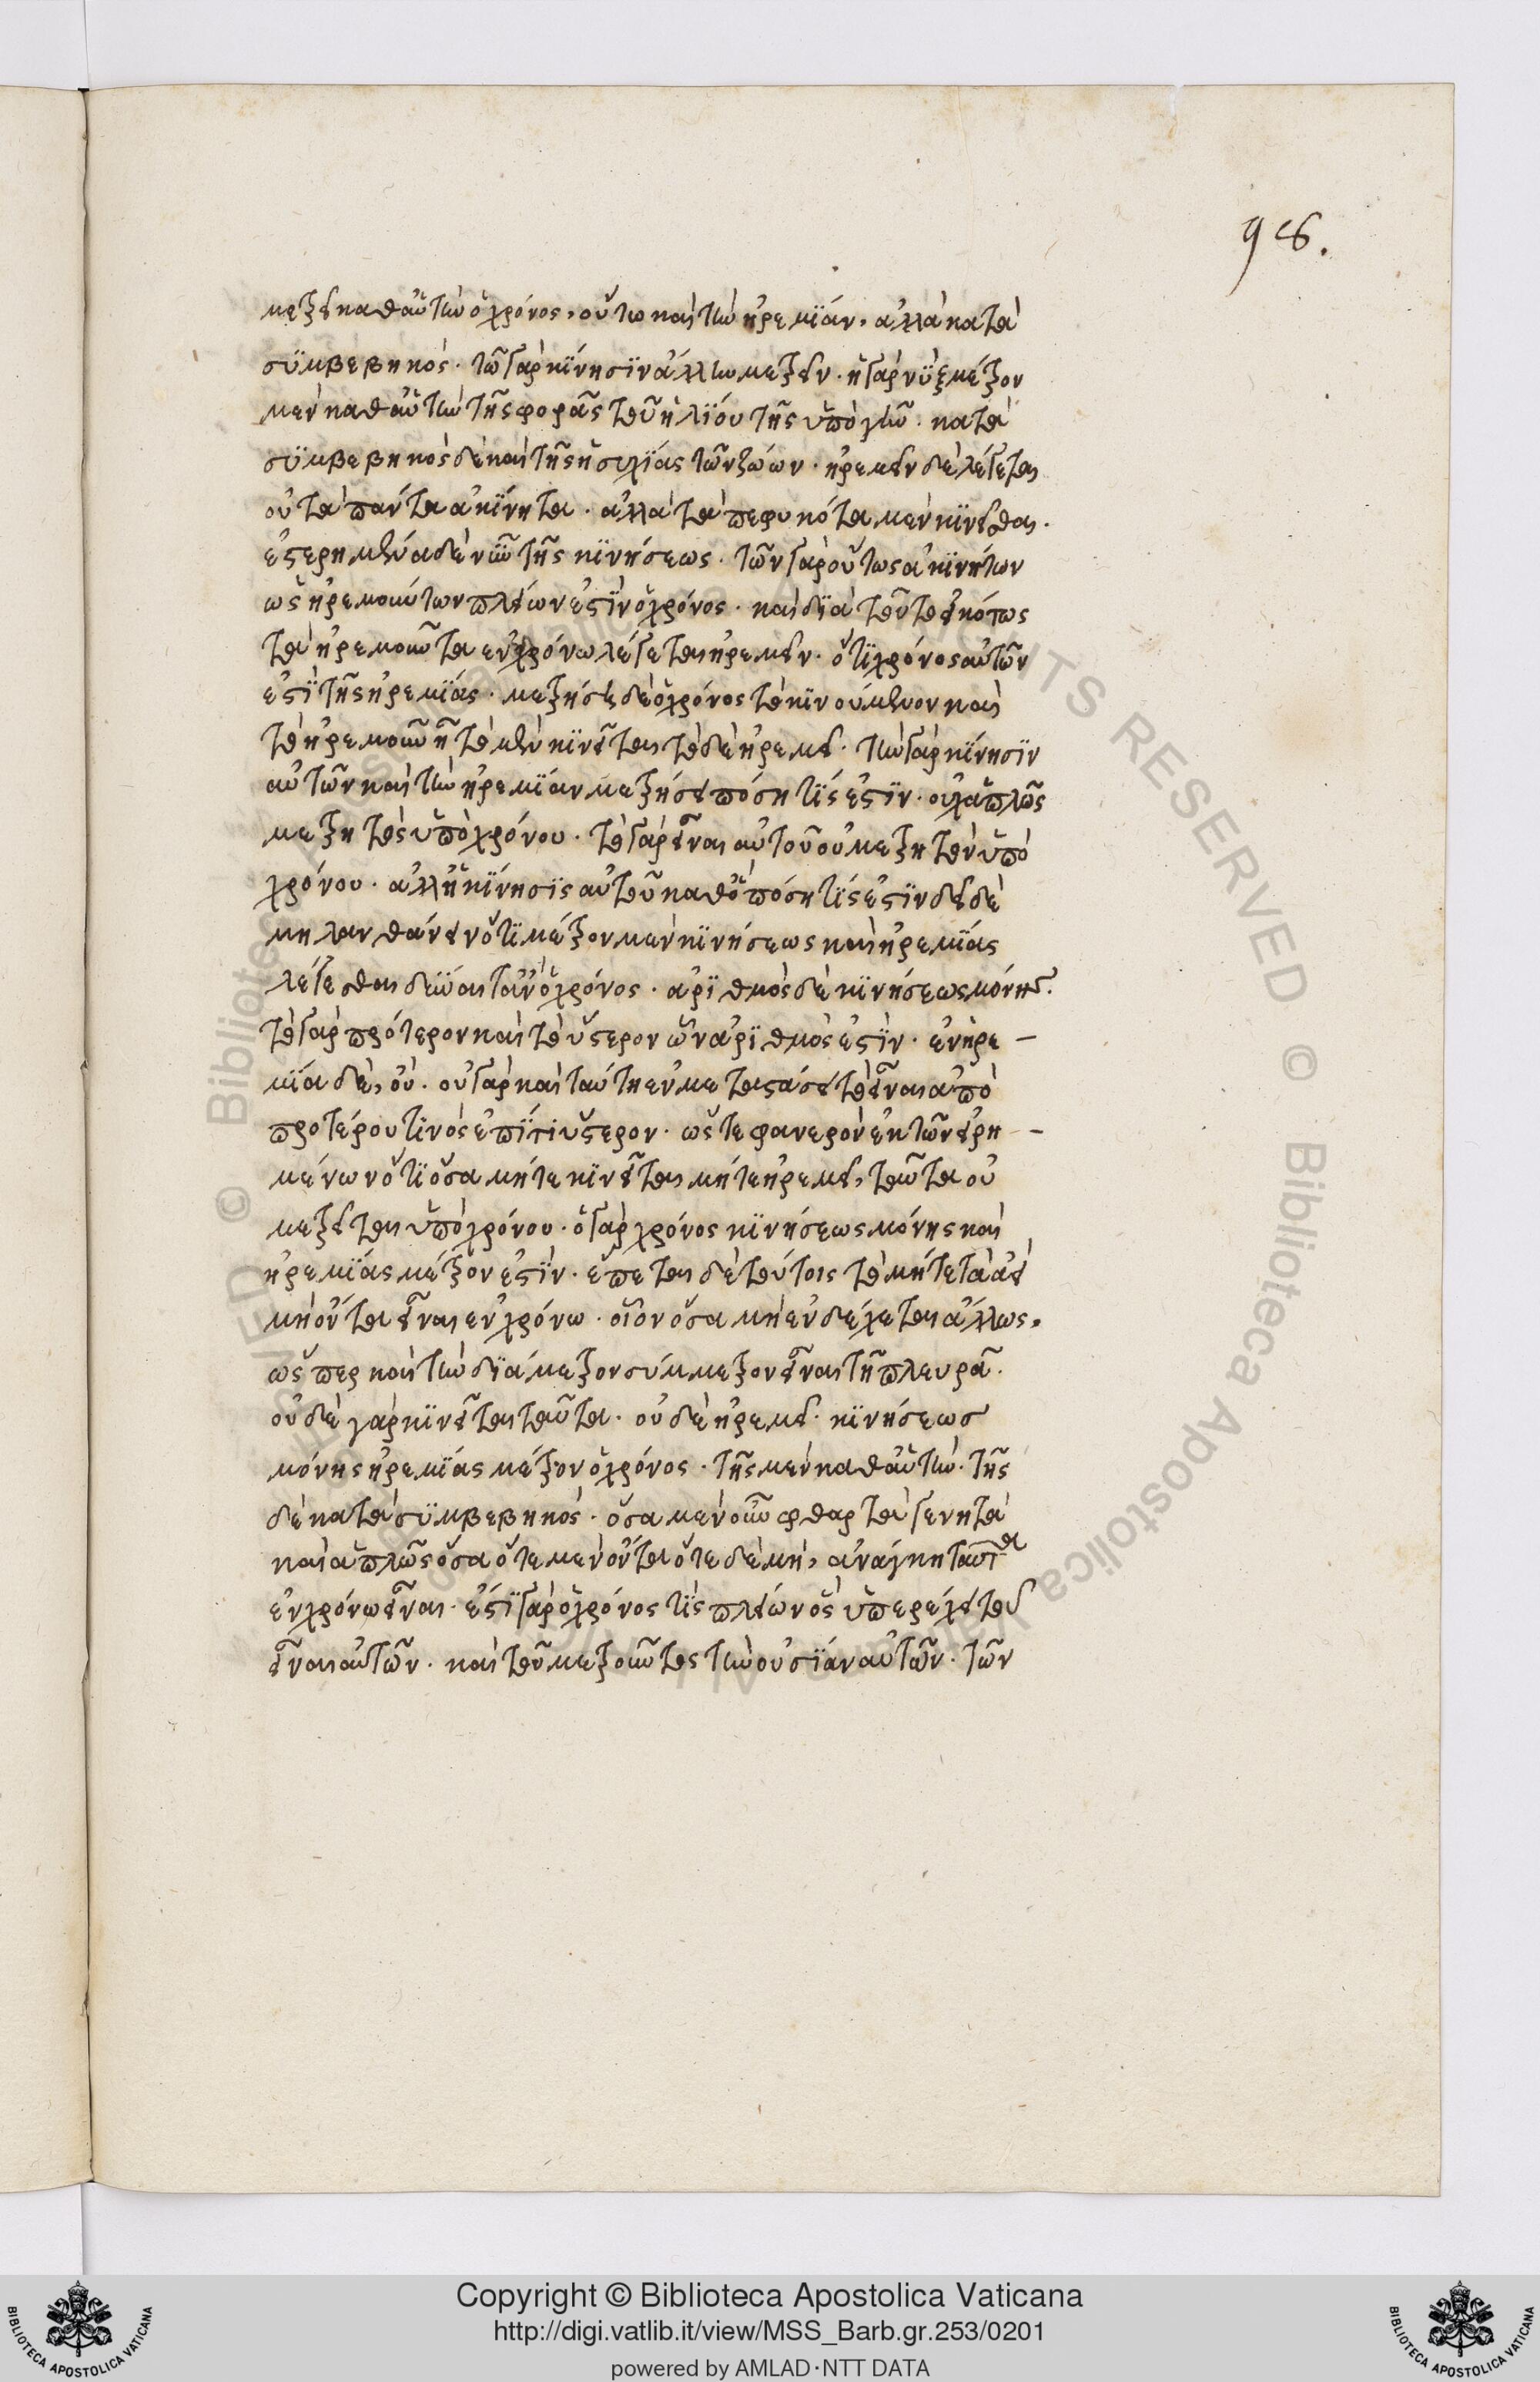 98.
μετρεῖ καθ αὑτὴν ὁ χρόνος, οὕτω καὶ τὴν ἠρεμίαν, ἀλλὰ κατὰ
συμβεβηκός. τῶ γὰρ κίνησιν ἄλλην μετρεῖν. ἡ γὰρ νὺξ μέτρον
μὲν καθ αὑτὴν τῆς φορᾶς τοῦ ἡλίου τῆς ὑπὸ γῆν. κατὰ
συμβεβηκὸς δὲ καὶ τῆς ἡσυχίας τῶν ζώων. ἠρεμεῖν δὲ λέγεται
οὐ τὰ πάντα ἀκίνητα. ἀλλὰ τὰ πεφυκότα μὲν κινεῖσθαι.
ἐστερημένα δὲ νῦν τῆς κινήσεως. τῶν γὰρ οὕτως ἀκινήτων
ὡς ἠρεμούντων πλείων ἐστὶν ὁ χρόνος. καὶ διὰ τοῦτο εἰκότως
τὰ ἠρεμοῦντα ἐν χρόνω λέγεται ἠρεμεῖν. ὅτι χρόνος αὐτῶν
ἐστὶ τῆς ἠρεμίας. μετρήσει δὲ ὁ χρόνος τὸ κινούμενον καὶ
τὸ ἠρεμοῦν ἧ τὸ μὲν κινεῖται τὸ δὲ ἠρεμεῖ. τὴν γὰρ κίνησιν
αὐτῶν καὶ τὴν ἠρεμίαν μετρήσει πόση τίς ἐστίν. οὐχ ἁπλῶς
μετρητὸς ὑπὸ χρόνου. τὸ γὰρ εἶναι αὐτοῦ οὐ μετρητὸν ὑπὸ
χρόνου. ἀλλ ἡ κίνησις αὐτοῦ καθ ὃ πόση τίς ἐστιν δεῖ δὲ
μὴ λανθάνειν ὅτι μέτρον μὲν κινήσεως καὶ ἠρεμίας
λέγεσθαι δύναιτ ἂν ὁ χρόνος. ἀριθμὸς δὲ κινήσεως μόνης.
τὸ γὰρ πρότερον καὶ τὸ ὕστερον ὧν ἀριθμὸς ἐστίν. ἐν ἠρε –
μία δὲ, οὐ. οὐ γὰρ καὶ ταύτη ἐν μεταστάσει τὸ εἶναι ἀπὸ
προτέρου τινὸς ἐπί τι ὕστερον. ὥστε φανερὸν ἐκ τῶν εἰρη –
μένων ὅτι ὅσα μήτε κινεῖται μήτε ἠρεμεῖ, ταῦτα οὐ
μετρεῖται ὑπὸ χρόνου. ὁ γὰρ χρόνος κινήσεως μόνης καὶ
ἠρεμίας μέτρον ἐστίν. ἕπεται δὲ τούτοις τὸ μήτε τὰ ἀεὶ
μὴ ὄντα εἶναι ἐν χρόνω. οἷον ὅσα μὴ ἐνδέχεται ἄλλως,
ὥσπερ καὶ τὴν διάμετρον σύμμετρον εἶναι τῆ πλευρᾶ.
οὐδὲ γὰρ κινεῖται ταῦτα. οὐδὲ ἠρεμεῖ. κινήσεως
μόνης ἠρεμίας μέτρον ὁ χρόνος. τῆς μὲν καθ αὑτὴν. τῆς
δὲ κατὰ συμβεβηκός. ὅσα μὲν οὖν φθαρτὰ γενητὰ
καὶ ἁπλῶς ὅσα ὅτε μὲν ὄντα ὅτε δὲ μὴ, ἀνάγκη ταῦτα
ἐν χρόνω εἶναι. ἐστὶ γὰρ ὁ χρόνος τὶς πλείων ὃς ὑπερέχει τοῦ
εἶναι αὐτῶν. καὶ τοῦ μετροῦντος τὴν οὐσίαν αὐτῶν. τῶν
Copyright © Biblioteca Apostolica Vaticana
http://digi.vatlib.it/view/MSS_Barb.gr.253/0201
powered by AMLAD·NTT DATA